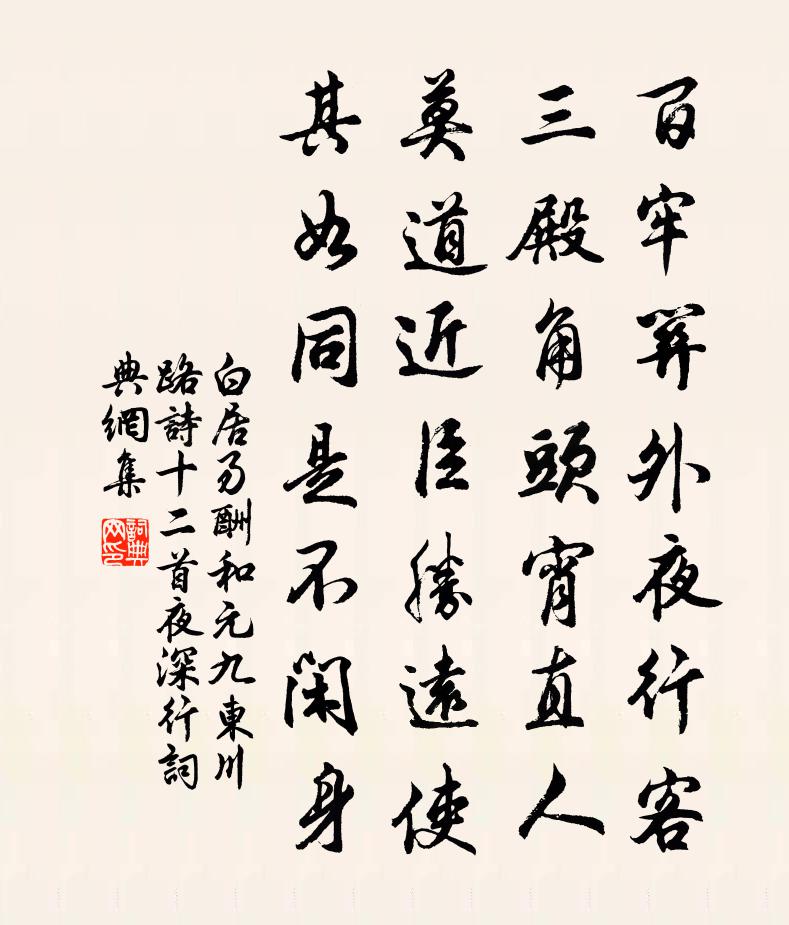 百牢關外夜行客
三殿角頭宵直人
莫道近臣勝遠使
其如同是不閑身
白居易酬和元九東川
路詩十二首夜深行詞
典網集
詞典網印